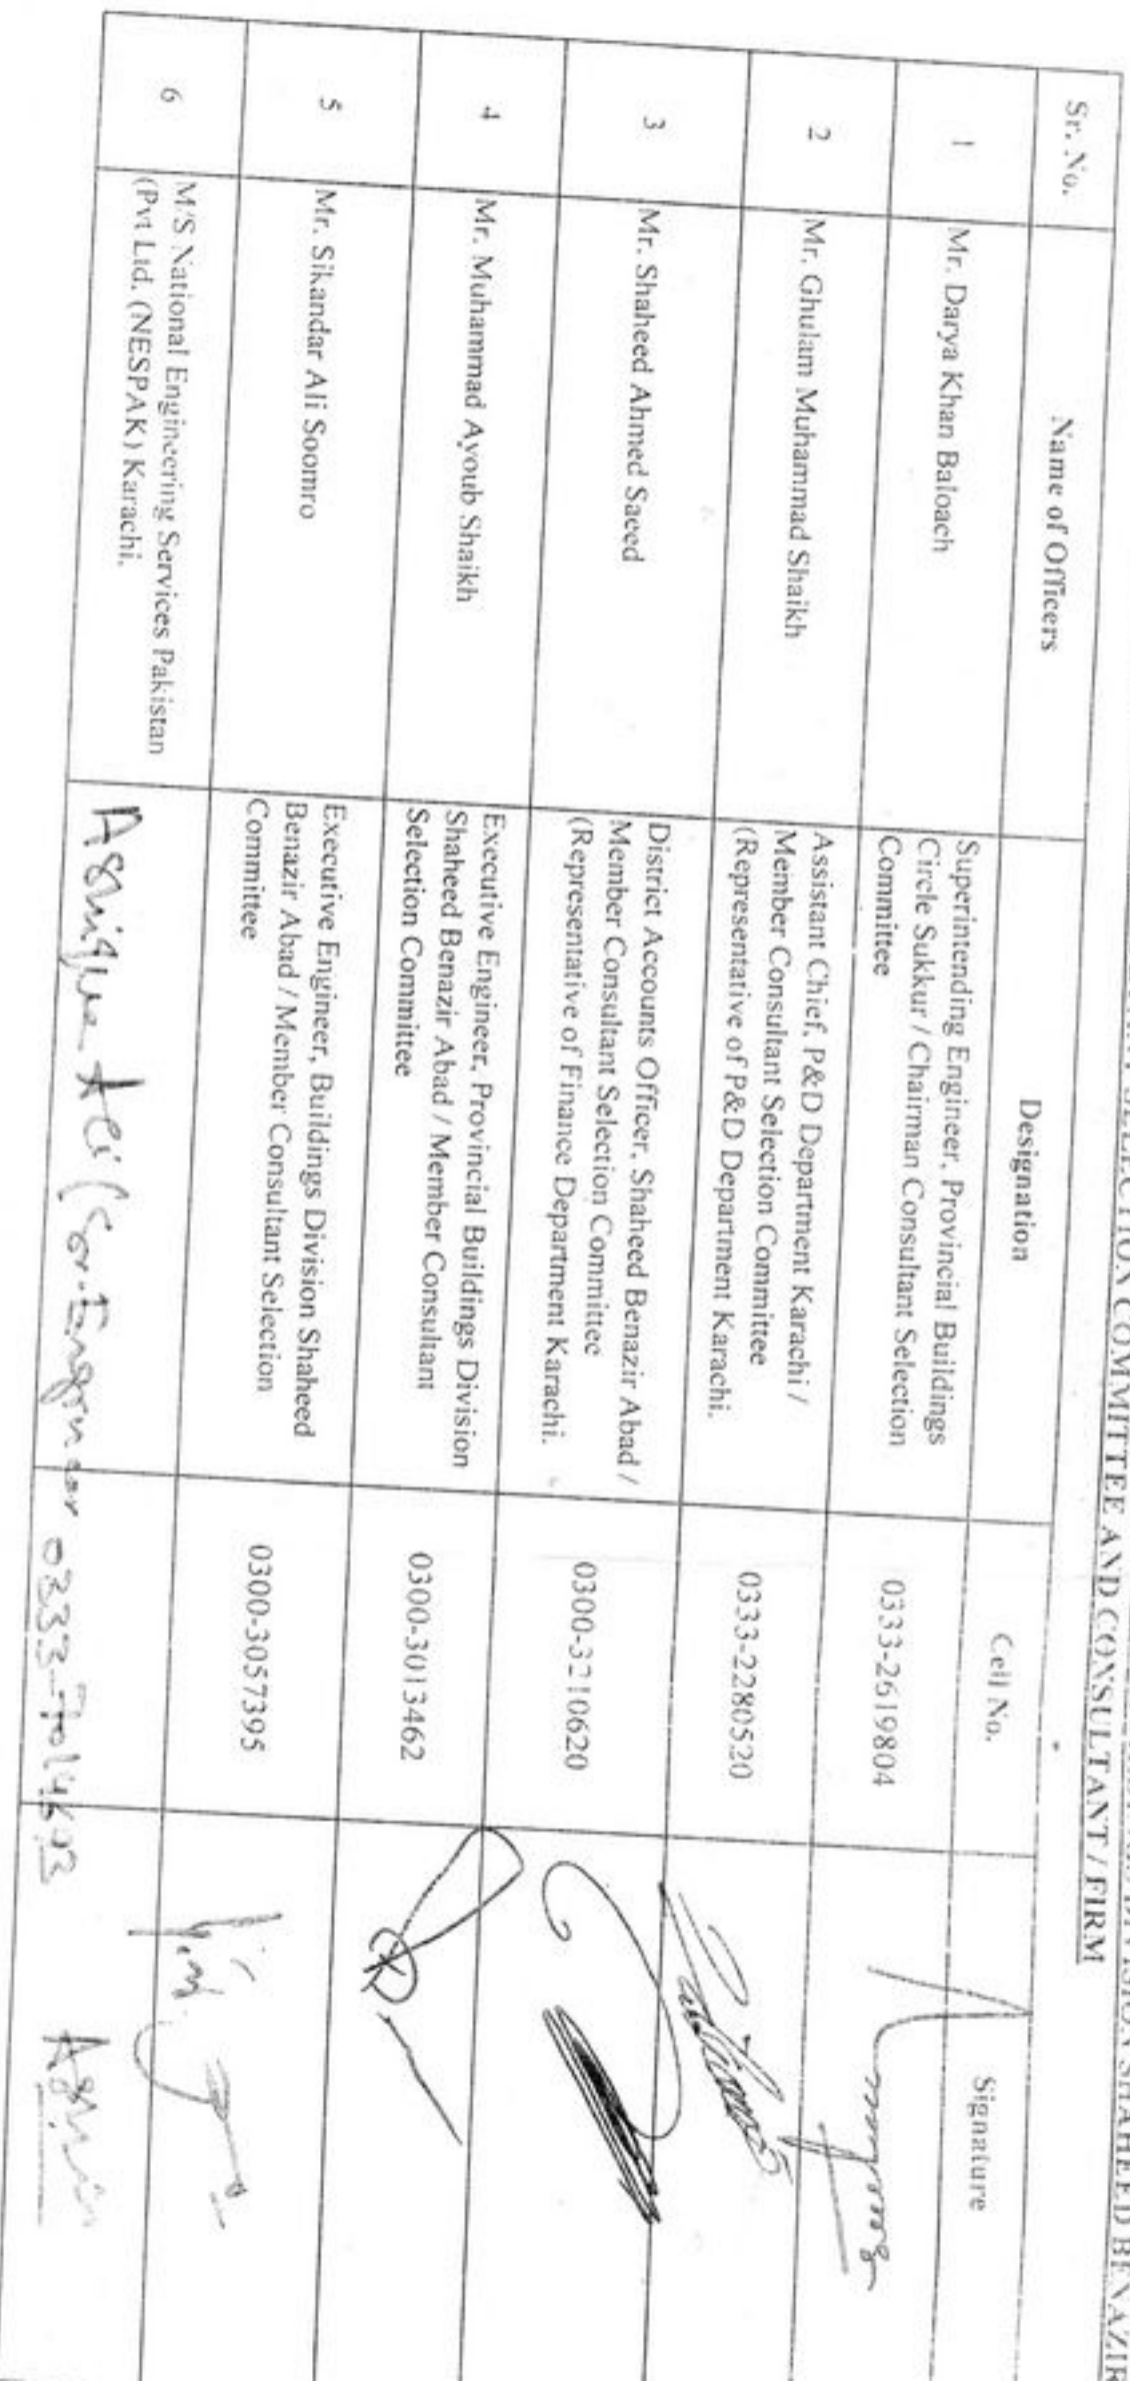 DIVISION SHAHEED BENAZIR
SELECTION COMMITTEE AND CONSULTANT / FIRM
Sr. No.
Name of Officers
Designation
Cell No.
Signature
1
Mr. Darya Khan Baloach
Superintending Engineer, Provincial Buildings
Circle Sukkur / Chairman Consultant Selection
Committee
0333-2619804
2
Mr. Ghulam Muhammad Shaikh
Assistant Chief, P&D Department Karachi /
Member Consultant Selection Committee
(Representative of P&D Department Karachi.
0333-2280520
3
Mr. Shaheed Ahmed Saeed
District Accounts Officer, Shaheed Benazir Abad /
Member Consultant Selection Committee
(Representative of Finance Department Karachi.
0300-3210620
4
Mr. Muhammad Ayoub Shaikh
Executive Engineer, Provincial Buildings Division
Shaheed Benazir Abad / Member Consultant
Selection Committee
0300-3013462
5
Mr. Sikandar Ali Soomro
Executive Engineer, Buildings Division Shaheed
Benazir Abad / Member Consultant Selection
Committee
0300-3057395
6
M/S National Engineering Services Pakistan
(Pvt Ltd. (NESPAK) Karachi.
Ali